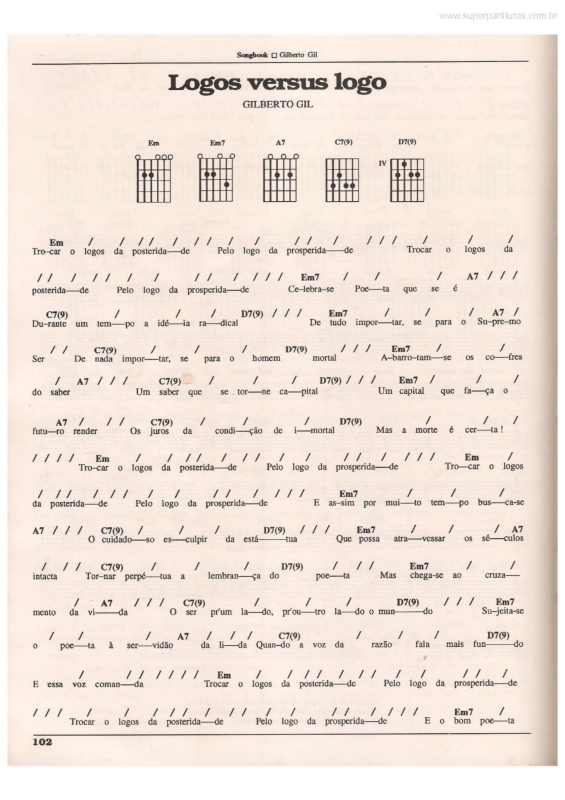 www.superpartituras.com.br
Songbook □ Gilberto Gil
Logos versus logo
GILBERTO GIL
Em Em7 A7 C7(9) D7(9)
IV
Em / / / / / / / / / / / / / / / /
Tro-car o logos da posterida—de Pelo logo da prosperida—de Trocar o logos da
/ / / / / / / / / / / / Em7 / / A7 / / /
posterida—de Pelo logo da prosperida—de Ce-lebra-se Poe—ta que se é
C7(9) / / / D7(9) / / / Em7 / / / A7 /
Du-rante um tem—po a idé—ia ra—dical De tudo impor—tar, se para o Su-pre-mo
/ / C7(9) / / / D7(9) / / / Em7 / /
Ser De nada impor—tar, se para o homem mortal A-barro-tam—se os co—fres
/ A7 / / / C7(9) / / / D7(9) / / / Em7 / / /
do saber Um saber que se tor—ne ca—pital Um capital que fa—ça o
A7 / / / C7(9) / / / D7(9) / / /
futu—ro render Os juros da condi—ção de i—mortal Mas a morte é cer—ta!
/ / / / Em / / / / / / / / / / / / / / Em /
Tro-car o logos da posterida—de Pelo logo da prosperida—de Tro—car o logos
/ / / / / / / / / / / / / Em7 / / /
da posterida—de Pelo logo da prosperida—de E as-sim por mui—to tem—po bus—ca-se
A7 / / / C7(9) / / / D7(9) / / / Em7 / / / A7
O cuidado—so es—culpir da está—tua Que possa atra—vessar os sé—culos
/ / / C7(9) / / / D7(9) / / / Em7 /
intacta Tor-nar perpé—tua a lembran—ça do poe—ta Mas chega-se ao cruza—
/ / A7 / / / C7(9) / / / D7(9) / / / Em7
mento da vi—da O ser pr'um la—do, pr'ou—tro la—do o mun—do Su-jeita-se
/ / / A7 / / / C7(9) / / / D7(9)
o poe—ta à ser—vidão da li—da Quan—do a voz da razão fala mais fun—do
/ / / / / / / Em / / / / / / / / / /
E essa voz coman—da Trocar o logos da posterida—de Pelo logo da prosperida—de
/ / / / / / / / / / / / / / / / / Em7 /
Trocar o logos da posterida—de Pelo logo da prosperida—de E o bom poe—ta
102